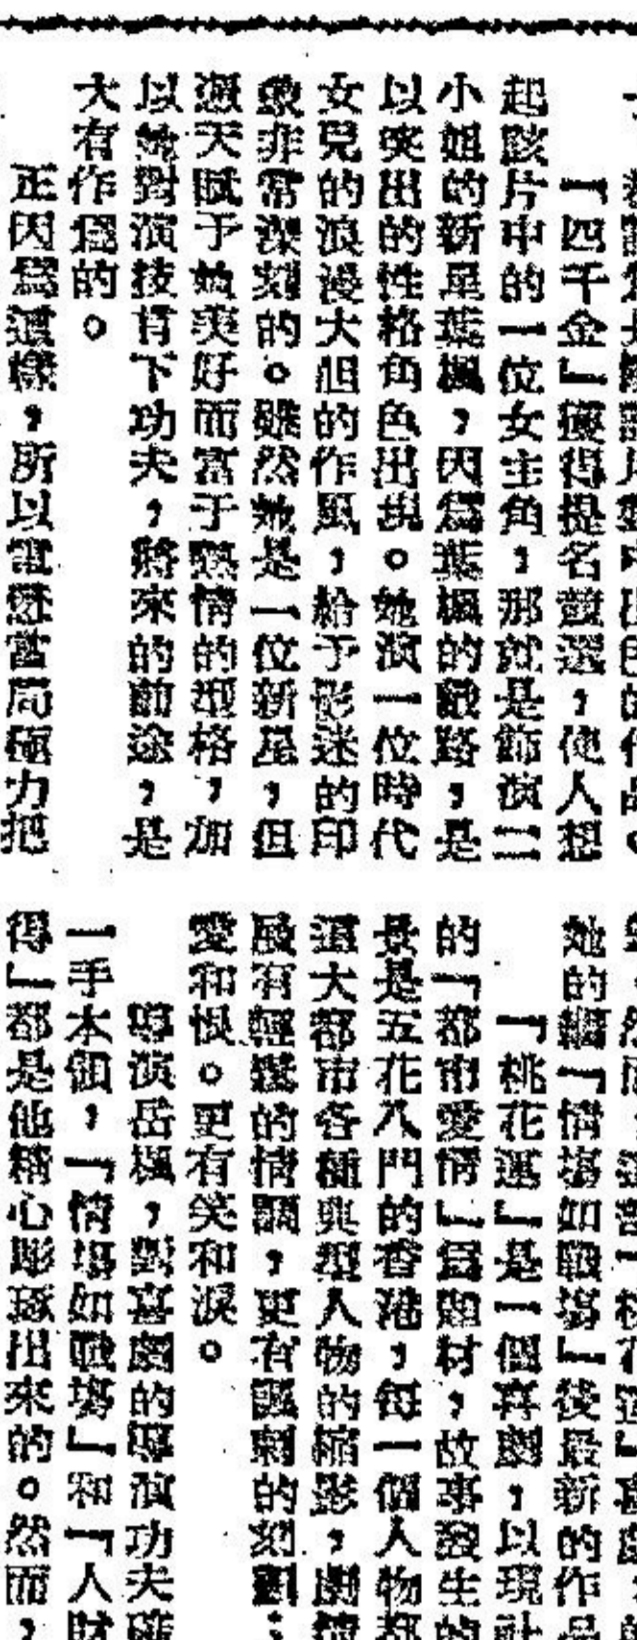 「四千金」獲得提名競選，使人想
起該片中的一位女主角，那就是飾演二
小姐的新星葉楓，因爲葉楓的戲路，是
以突出的性格角色出現。她演一位時代
女兒的浪漫大胆的作風，給于影迷的印
象非常深刻的。雖然她是一位新星，但
憑天賦予她美好而富于熱情的型格，加
以她對演技肯下功夫，將來的前途，是
大有作爲的。
正因爲這樣，所以電懋當局極力把
她的繼「情塲如戰塲」後最新的作品
「桃花運」是一個喜劇，以現社
的「都市愛情」爲題材，故事發生的
景是五花八門的香港，每一個人物都
這大都市各種典型人物的縮影，劇情
雖有輕鬆的情調，更有諷刺的刻劃；
愛和恨。更有笑和淚。
導演岳楓，對喜劇的導演功夫確
一手本領，「情塲如戰塲」和「人財
得」都是他精心彫琢出來的。然而，